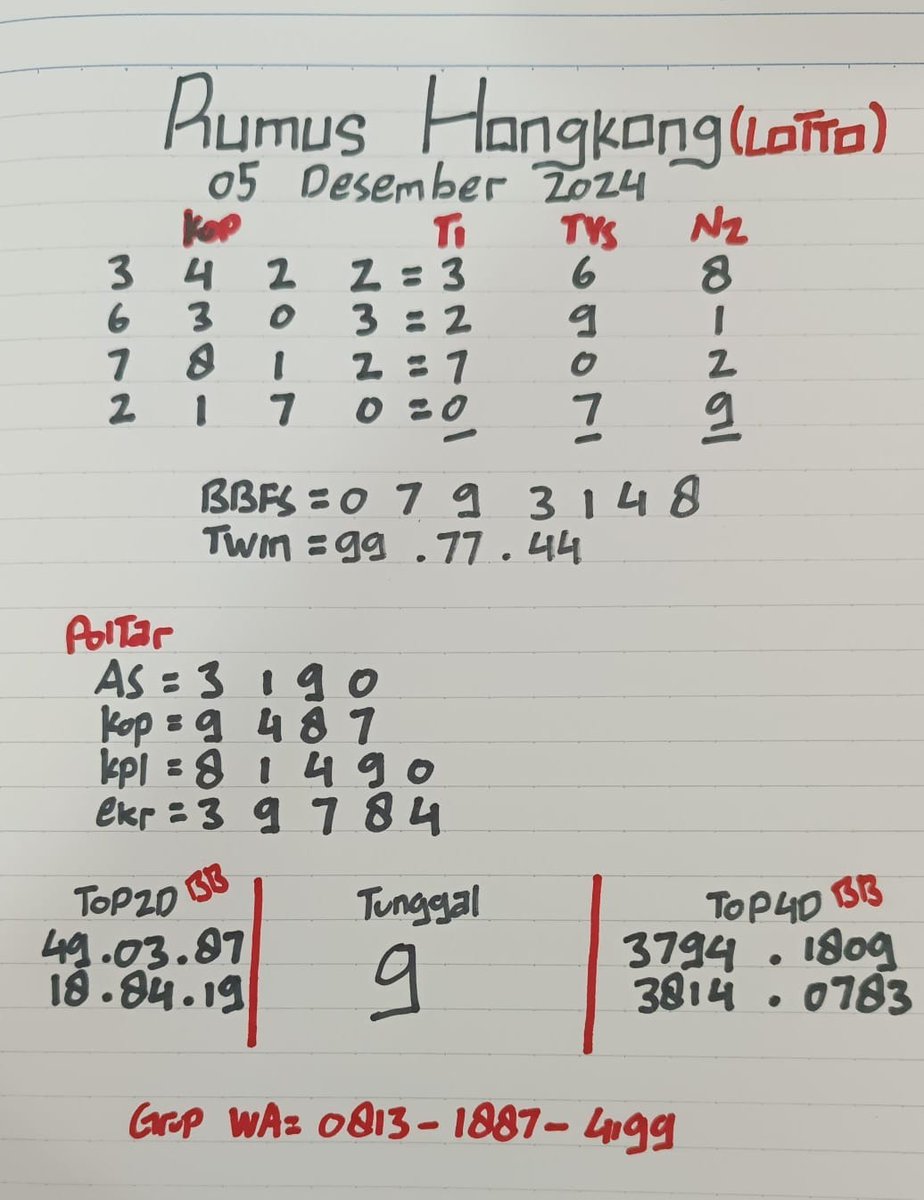 Rumus Hongkong (LOTTO)
05 Desember 2024
Kop TI TYS NZ
3 4 2 2 = 3 6 8
6 3 0 3 = 2 9 1
7 8 1 2 = 7 0 2
2 1 7 0 = 0 7 9
BBFS = 0 7 9 3 1 4 8
Twin = 99 . 77 . 44
PolTar
AS = 3 1 9 0
kop = 9 4 8 7
kpl = 8 1 4 9 0
ekr = 3 9 7 8 4
ToP2D BB Tunggal ToP4D BB
49.03.87 9 3794 . 1809
18.84.19 3814 . 0783
Grup WA= 0813-1887-4199